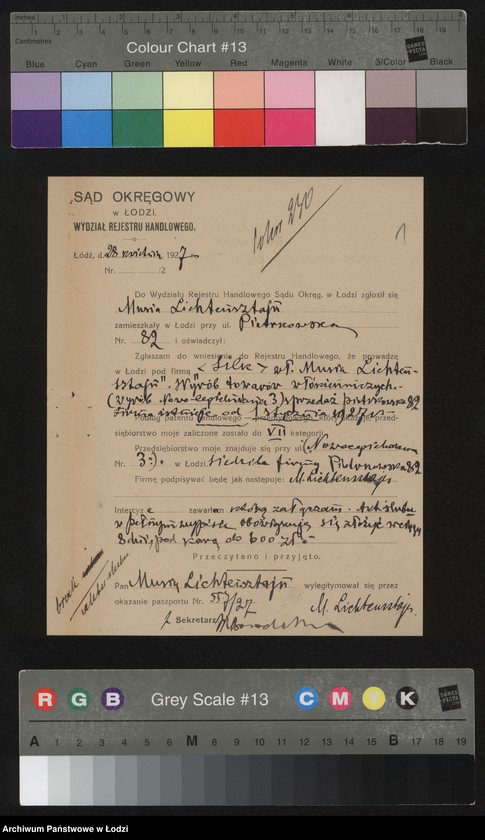 Inches 1 2 3 4 5 6 7 8
Centimetres 1 2 3 4 5 6 7 8 9 10 11 12 13 14 15 16 17 18 19
Colour Chart #13
DANES PICTA
Blue Cyan Green Yellow Red Magenta White 3/Color Black
SĄD OKRĘGOWY
w ŁODZI.
WYDZIAŁ REJESTRU HANDLOWEGO.
240
1
Łódź, d. 28 kwietnia 1927
Nr. /2
Do Wydziału Rejestru Handlowego Sądu Okręg. w Łodzi zgłosił się
Muria Lichtensztajn
zamieszkały w Łodzi przy ul. Piotrkowska
Nr. 82 i oświadczył:
Zgłaszam do wniesienia do Rejestru Handlowego, że prowadzę
w Łodzi pod firmą „Silk" wł. Muria Lichten-
sztajn". Wyrób towarów włókienniczych.-
(wyrób Nowo-Cegielniana 3) sprzedaż Piotrkowska 82
Firma istnieje od 1 stycznia 1927 r.
Podług patentu handlowego przed-
siębiorstwo moje zaliczone zostało do VII kategorji.
Przedsiębiorstwo moje znajduje się przy ul. (Nowocegielniana
Nr. 3:). w Łodzi. siedziba firmy Piotrkowska 82
Firmę podpisywać będę jak następuje: M. Lichtensztajn
Intercyzę zawarłem
w pełnym wypisie obowiązuję się złożyć w ciągu
8 dni, pod karą do 600 zł.-
Przeczytano i przyjęto.
Pan Muria Lichtensztajn wylegitymował się przez
okazanie paszportu Nr. /27
M. Lichtensztajn.
Sekretarz
brak
R G B Grey Scale #13 C M Y K
DANES PICTA
A 1 2 3 4 5 6 M 8 9 10 11 12 13 14 15 B 17 18 19
Archiwum Państwowe w Łodzi